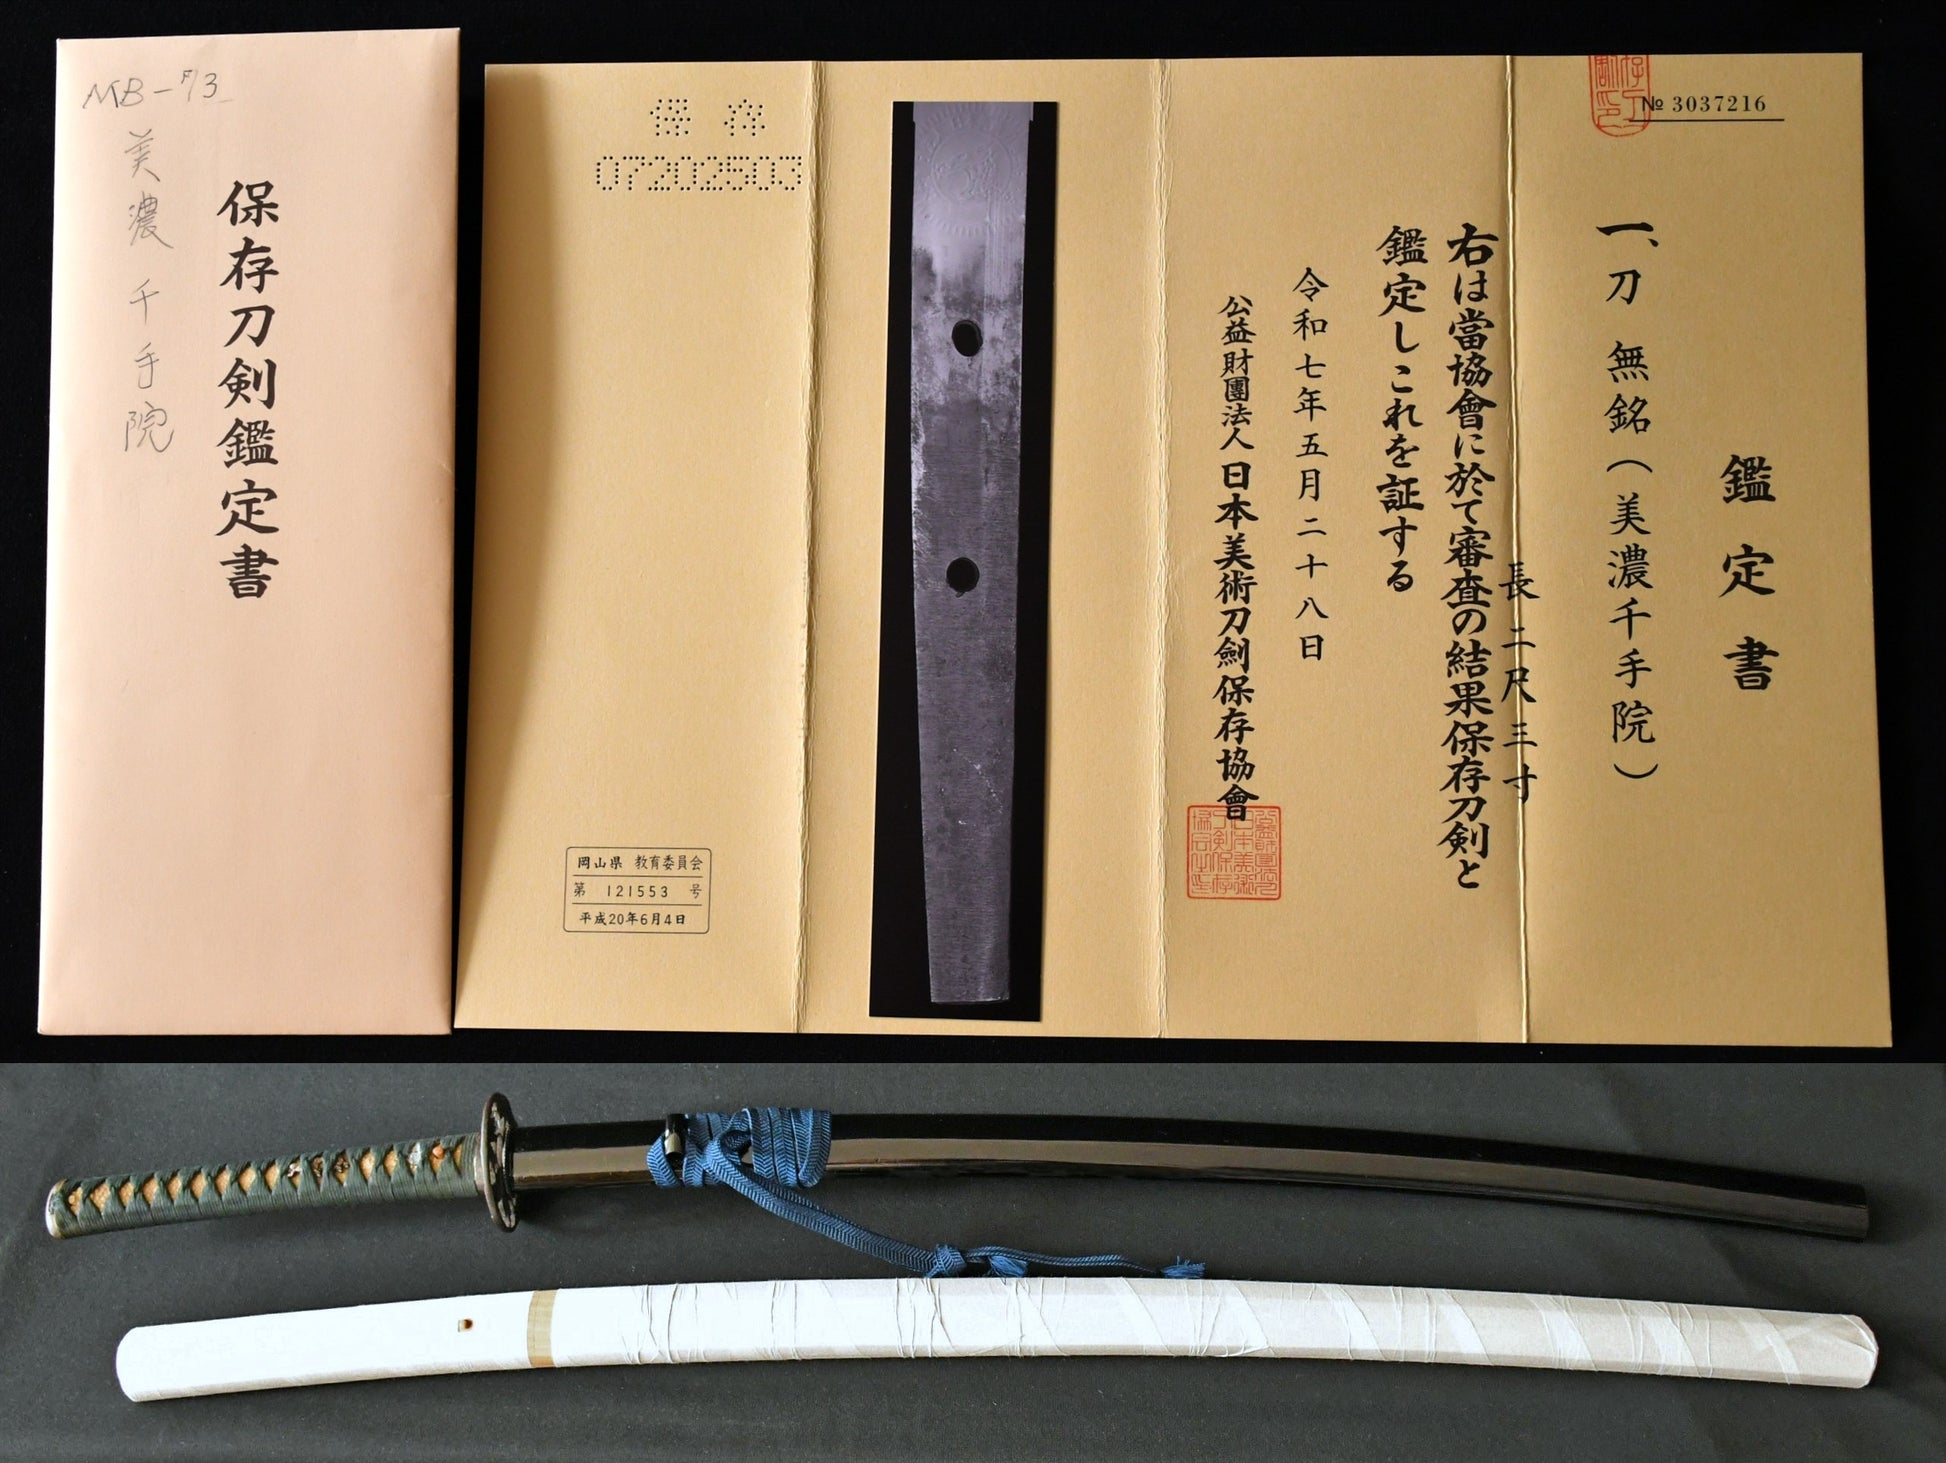 MB-713
美濃千手院
保存刀剣鑑定書
№ 3037216
鑑定書
一、刀 無銘(美濃千手院)
長 二尺三寸
右は當協會に於て審査の結果保存刀剣と
鑑定しこれを証する
令和七年五月二十八日
公益財團法人日本美術刀劍保存協會
保存
07202503
岡山県 教育委員会
第 121553 号
平成20年6月4日